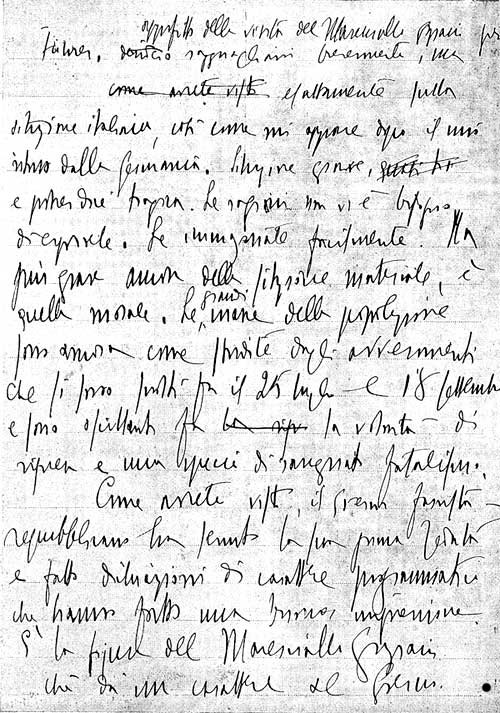 approfitto della venuta del Maresciallo Graziani per
Führer, ragguagliarvi brevemente, ma
come avrete visto esattamente sulla
situazione italiana, così come mi appare dopo il mio
ritorno dalla Germania. Situazione grave,
e potrei dire tragica. Le ragioni non vi è bisogno
di esporvele. Le immaginate facilmente. Ma
più grave ancora della situazione materiale, è
quella morale. Le grandi masse della popolazione
sono ancora come stordite dagli avvenimenti
che si sono svolti fra il 25 luglio e l'8 settembre
e sono oscillanti fra la volontà di
ripresa e una specie di rassegnato fatalismo.
Come avrete visto, il Governo fascista
repubblicano ha tenuto la sua prima seduta
e fatto dichiarazioni di carattere programmatico
che hanno fatto una buona impressione.
È la figura del Maresciallo Graziani
che dà un carattere al Governo.